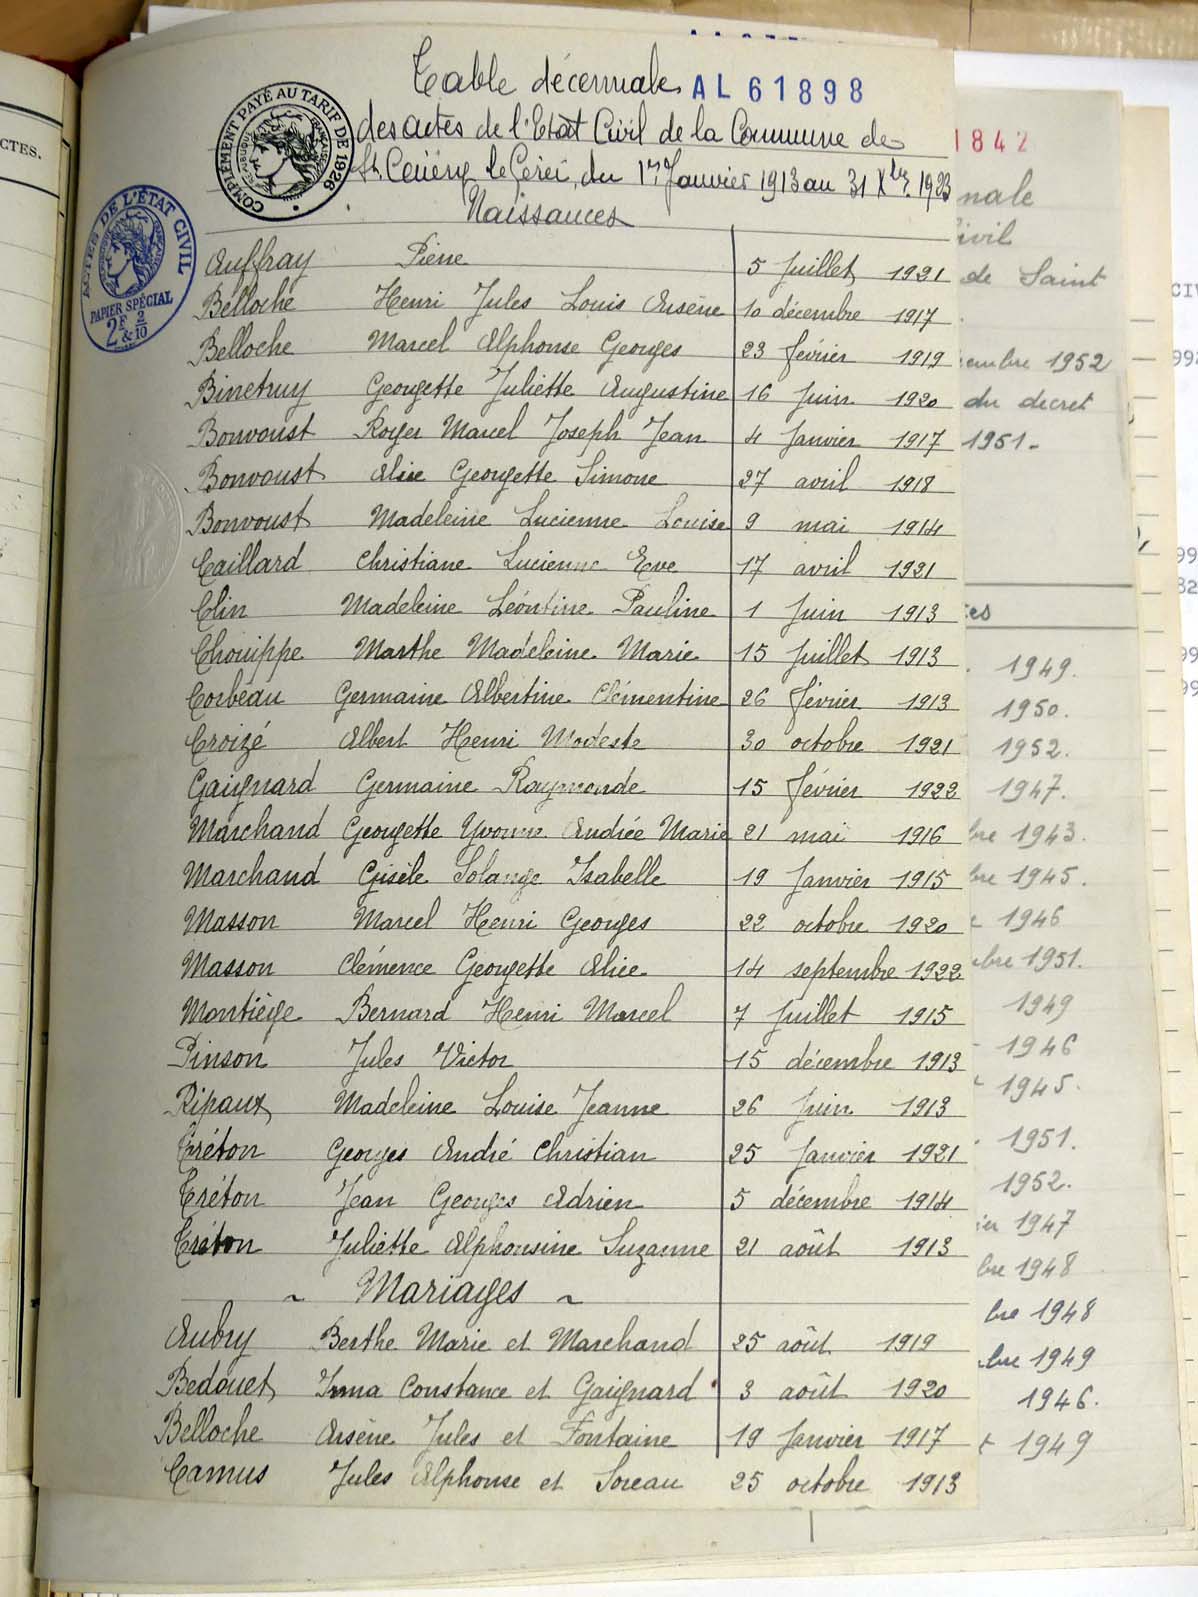 CTES.
Table décennale AL 61898
des actes de l'Etat Civil de la Commune de
St Céneri le Gérei, du 1er Janvier 1913 au 31 Xbre 1923
Naissances
COMPLÉMENT PAYÉ AU TARIF DE 1926
RÉPUBLIQUE FRANÇAISE
ACTES DE L'ÉTAT CIVIL
PAPIER SPÉCIAL
2F & 2/10
Auffray Pierre 5 Juillet 1921
Belloche Henri Jules Louis Arsène 10 décembre 1917
Belloche Marcel Alphonse Georges 23 février 1919
Binetruy Georgette Juliette Augustine 16 Juin 1920
Bonvoust Roger Marcel Joseph Jean 4 Janvier 1917
Bonvoust Alice Georgette Simone 27 avril 1918
Bonvoust Madeleine Lucienne Louise 9 mai 1914
Caillard Christiane Lucienne Eve 17 avril 1921
Clin Madeleine Léontine Pauline 1 Juin 1913
Chouippe Marthe Madeleine Marie 15 Juillet 1913
Corbeau Germaine Albertine Clémentine 26 février 1913
Croizé Albert Henri Modeste 30 octobre 1921
Gaignard Germaine Raymonde 15 février 1922
Marchand Georgette Yvonne Andrée Marie 21 mai 1916
Marchand Gisèle Solange Isabelle 19 Janvier 1915
Masson Marcel Henri Georges 22 octobre 1920
Masson Clémence Georgette Alice 14 septembre 1922
Montiège Bernard Henri Marcel 7 Juillet 1915
Pinson Jules Victor 15 décembre 1913
Ripaux Madeleine Louise Jeanne 26 Juin 1913
Créton Georges André Christian 25 Janvier 1921
Créton Jean Georges Adrien 5 décembre 1914
Créton Juliette Alphonsine Suzanne 21 août 1913
~ Mariages ~
Aubry Berthe Marie et Marchand 25 août 1919
Bedouet Irma Constance et Gaignard 3 août 1920
Belloche Arsène Jules et Fontaine 19 Janvier 1917
Camus Jules Alphonse et Soreau 25 octobre 1913
1842
nale
ivil
de Saint
embre 1952
du decret
1951.
tes
1949.
1950.
1952.
1947.
bre 1943.
bre 1945.
1946
bre 1951.
1949
1946
1945.
1951.
1952.
ier 1947
bre 1948
bre 1948
bre 1949
1946.
1949